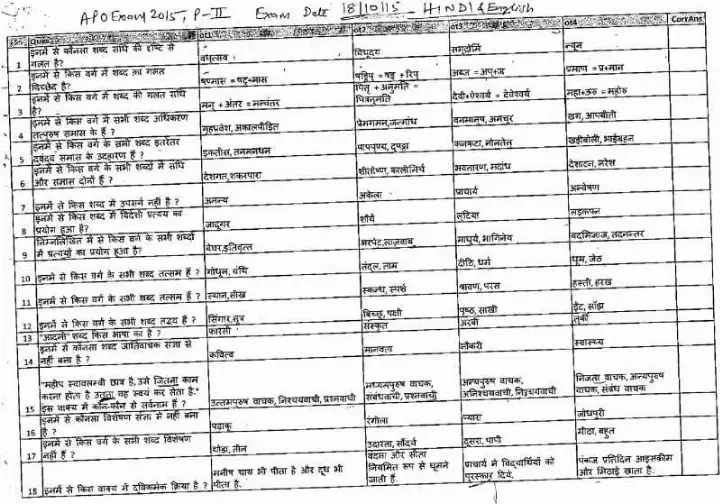 APO Exam 2015, P-II Exam Date 18/10/15 - HINDI & English
ot1 ot2 ot3 ot4 CorrAns
1 इनमें से कौनसा शब्द संधि की दृष्टि से गलत है? वधुत्सव न्यून
2 इनमें से किस वर्ग में शब्द का गलत विच्छेद है? षण्मास = षट्+मास षड्रिपु = षट् + रिपु अब्ज = अप्+ज प्रमाण = प्र+मान
3 इनमें से किस वर्ग में शब्द की गलत संधि है? मनु + अंतर = मन्वंतर पितृ + अनुमति = पित्रनुमति देवी+ऐश्वर्य = देवेश्वर्य महा+ऊरु = महोरु
4 इनमें से किस वर्ग में सभी शब्द अधिकरण तत्पुरुष समास के हैं ? गृहप्रवेश, अकालपीड़ित प्रेममगन,जन्मांध वनमानुष, अमचूर खग, आपबीती
5 इनमें से किस वर्ग के सभी शब्द इतरेतर द्वंद्व समास के उदाहरण हैं ? इकतीस, तनमनधन पापपुण्य, दुपट्टा कनकटा, नोनतेल खड़ीबोली, भाईबहन
6 इनमें से किस वर्ग के सभी शब्दों में संधि और समास दोनों हैं ? देशगत,शकरपारा शीतोष्ण, कालीमिर्च अवतारण, मदांध देशाटन, नरेश
7 इनमें से किस शब्द में उपसर्ग नहीं है ? अनन्य अकेला प्राचार्य अन्वेषण
8 इनमें से किस शब्द में विदेशी प्रत्यय का प्रयोग हुआ है? जादूगर शौर्य लुटिया लड़कपन
9 निम्नलिखित में से किस वर्ग के सभी शब्दों में प्रत्ययों का प्रयोग हुआ है? बेघर,इतिवृत्त भरपेट,लाजवाब माधुर्य, भागिनेय बदमिजाज, तदनन्तर
10 इनमें से किस वर्ग के सभी शब्द तत्सम हैं ? गोधूम, ग्रंथि तंदुल, ताम दीठि, धर्म धूम, जेठ
11 इनमें से किस वर्ग के सभी शब्द तत्सम हैं ? स्थान,सीख स्कन्ध, स्पर्श श्रावण, परस हस्ती, हरख
12 इनमें से किस वर्ग के सभी शब्द तद्भव हैं ? सिंगार,सूत्र बिच्छू, पक्षी पुष्ठ, साखी ईंट, साँझ
13 "आदमी" शब्द किस भाषा का है ? फारसी संस्कृत अरबी तुर्की
14 इनमें से कौनसा शब्द जातिवाचक संज्ञा से नहीं बना है ? कवित्व मानवता नौकरी स्वास्थ्य
15 "महीप स्वावलम्बी छात्र है, उसे जितना काम करना होता है उतना वह स्वयं कर लेता है." इस वाक्य में कौन-कौन से सर्वनाम हैं ? उत्तमपुरुष वाचक, निश्चयवाची, प्रश्नवाची मध्यमपुरुष वाचक, संबंधवाची, प्रश्नवाची अन्यपुरुष वाचक, अनिश्चयवाची, निश्चयवाची निजता वाचक, अन्यपुरुष वाचक, संबंध वाचक
16 इनमें से कौनसा विशेषण संज्ञा से नहीं बना है ? पढ़ाकू रंगीला प्यारा जोधपुरी
17 इनमें से किस वर्ग के सभी शब्द विशेषण नहीं हैं ? थोड़ा, तीन उदारता, सौंदर्य दूसरा, पापी मीठा, बहुत
18 इनमें से किस वाक्य में द्विकर्मक क्रिया है ? मनीष चाय भी पीता है और दूध भी पीता है. वंदना और सीता नियमित रूप से घूमने जाती हैं. प्राचार्य ने विद्यार्थियों को पुरस्कार दिये. पंकज प्रतिदिन आइसक्रीम और मिठाई खाता है.